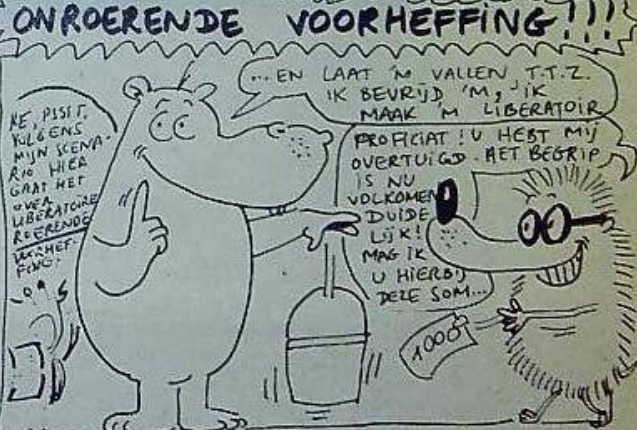 ONROERENDE VOORHEFFING!!!
HE, PSSST,
VOLGENS
MIJN SCENA-
RIO HIER
GAAT HET
OVER
LIBERATOIRE
ROERENDE
VOORHEF-
FING!
...EN LAAT 'M VALLEN T.T.Z.
IK BEVRIJD 'M, 'IK
MAAK 'M LIBERATOIR
PROFICIAT! U HEBT MIJ
OVERTUIGD. HET BEGRIP
IS NU
VOLKOMEN
DUIDE
LIJK!
MAG IK
U HIERBIJ
DEZE SOM...
1000